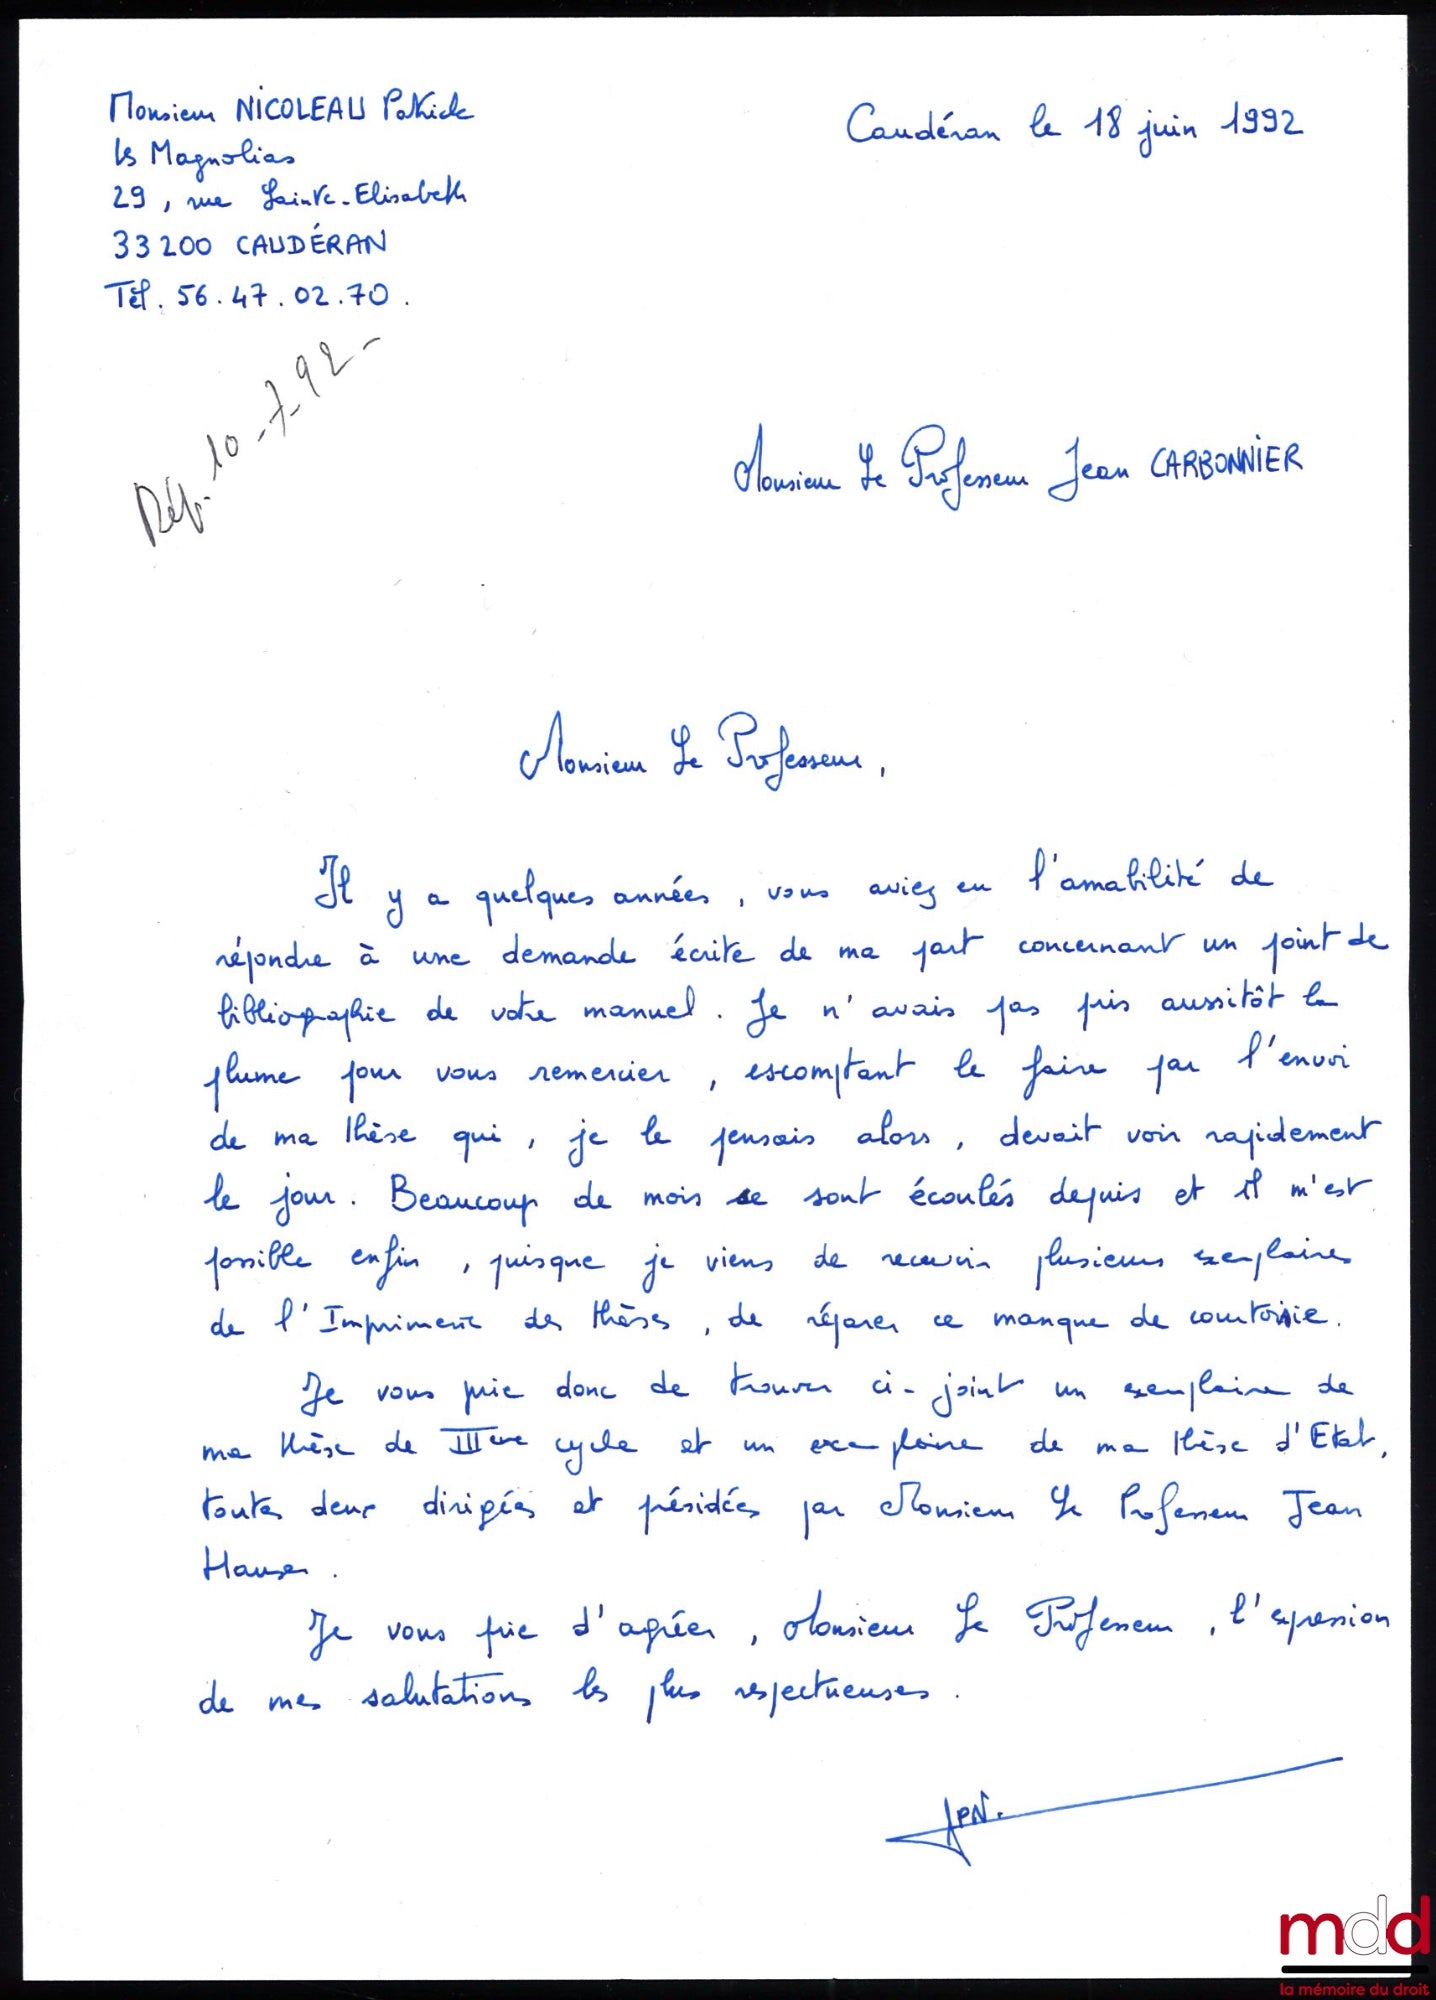 Monsieur NICOLEAU Patrick
les Magnolias
29, rue Sainte-Elisabeth
33200 CAUDÉRAN
Tél. 56.47.02.70.
Caudéran le 18 juin 1992
Rép. 10-7-92-
Monsieur Le Professeur Jean CARBONNIER
Monsieur Le Professeur,
Il y a quelques années, vous aviez eu l'amabilité de
répondre à une demande écrite de ma part concernant un point de
bibliographie de votre manuel. Je n'avais pas pris aussitôt la
plume pour vous remercier, escomptant le faire par l'envoi
de ma thèse qui, je le pensais alors, devait voir rapidement
le jour. Beaucoup de mois se sont écoulés depuis et il m'est
possible enfin, puisque je viens de recevoir plusieurs exemplaires
de l'Imprimerie des thèses, de réparer ce manque de courtoisie.
Je vous prie donc de trouver ci-joint un exemplaire de
ma thèse de IIIème cycle et un exemplaire de ma thèse d'Etat,
toutes deux dirigées et présidées par Monsieur Le Professeur Jean
Hauser.
Je vous prie d'agréer, Monsieur Le Professeur, l'expression
de mes salutations les plus respectueuses.
PN.
mdd
la mémoire du droit